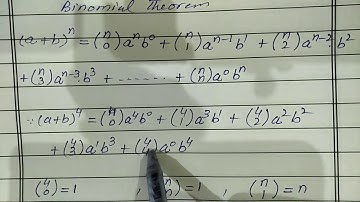 Binomial Theorem
(a+b)^n = (n 0) a^n b^0 + (n 1) a^{n-1} b^1 + (n 2) a^{n-2} b^2
+ (n 3) a^{n-3} b^3 + ........ + (n n) a^0 b^n
∵ (a+b)^4 = (4 0) a^4 b^0 + (4 1) a^3 b^1 + (4 2) a^2 b^2
+ (4 3) a^1 b^3 + (4 4) a^0 b^4
(4 0) = 1 , (n n) = 1 , (n 1) = n